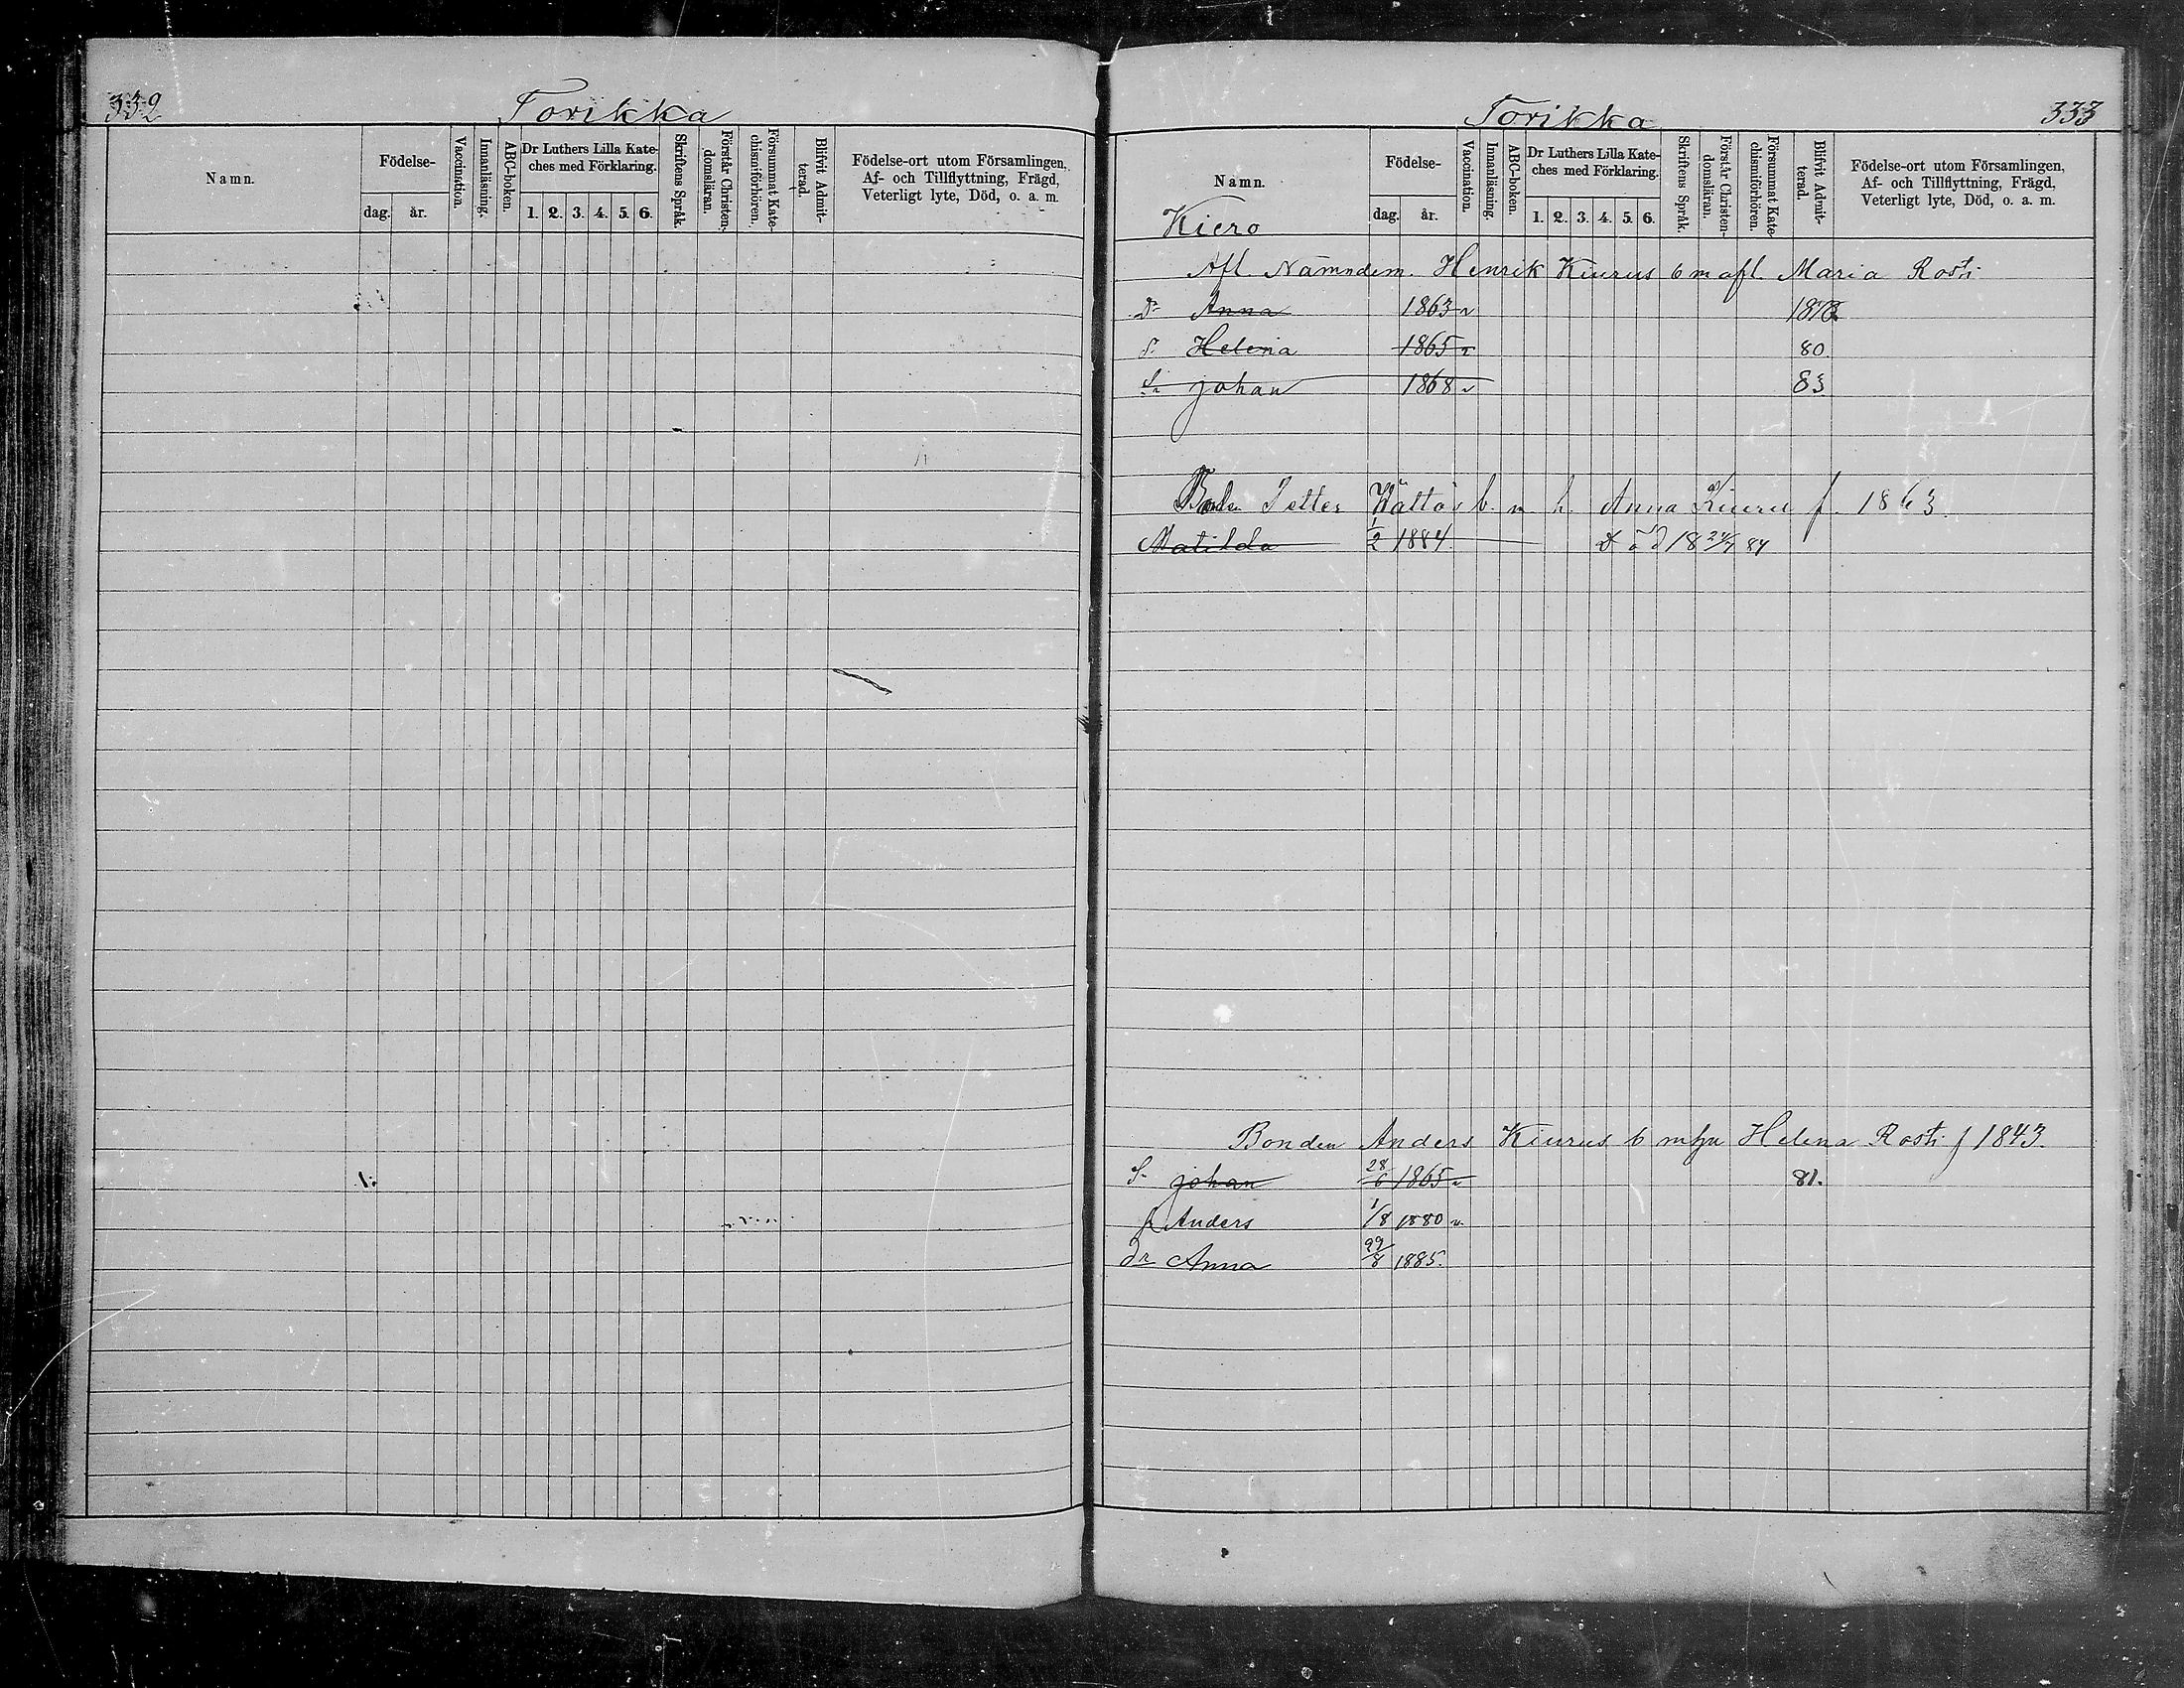 332
Torikka
Namn.
Födelse-
dag.
år.
Vaccination.
Innanläsning.
ABC-boken.
Dr Luthers Lilla Kate-
ches med Förklaring.
1. 2. 3. 4. 5. 6.
Skriftens Språk.
Förstår Christen-
domsläran.
Försummat Kate-
chismiförhören.
Blifvit Admit-
terad.
Födelse-ort utom Församlingen,
Af- och Tillflyttning, Frägd,
Veterligt lyte, Död, o. a. m.
Torikka
333
Namn.
Födelse-
dag.
år.
Vaccination.
Innanläsning.
ABC-boken.
Dr Luthers Lilla Kate-
ches med Förklaring.
1. 2. 3. 4. 5. 6.
Skriftens Språk.
Förstår Christen-
domsläran.
Försummat Kate-
chismiförhören.
Blifvit Admit-
terad.
Födelse-ort utom Församlingen,
Af- och Tillflyttning, Frägd,
Veterligt lyte, Död, o. a. m.
Kiero
Afl. Nämndem. Henrik Kiurus b m afl. Maria Rosti
Dr Anna 1863 v
Helena 1865 v 80
Sn Johan 1868 v 83
Bonden Petter Wättö b. m. h. Anna Kiuru f. 1863.
Matilda 1/2 1884. Död 18 24/7 84
Bonden Anders Kiurus b m hu Helena Rosti f 1843.
Sn Johan 28/6 1865 v 81.
Anders 1/8 1880 v.
dr Anna 29/8 1885.